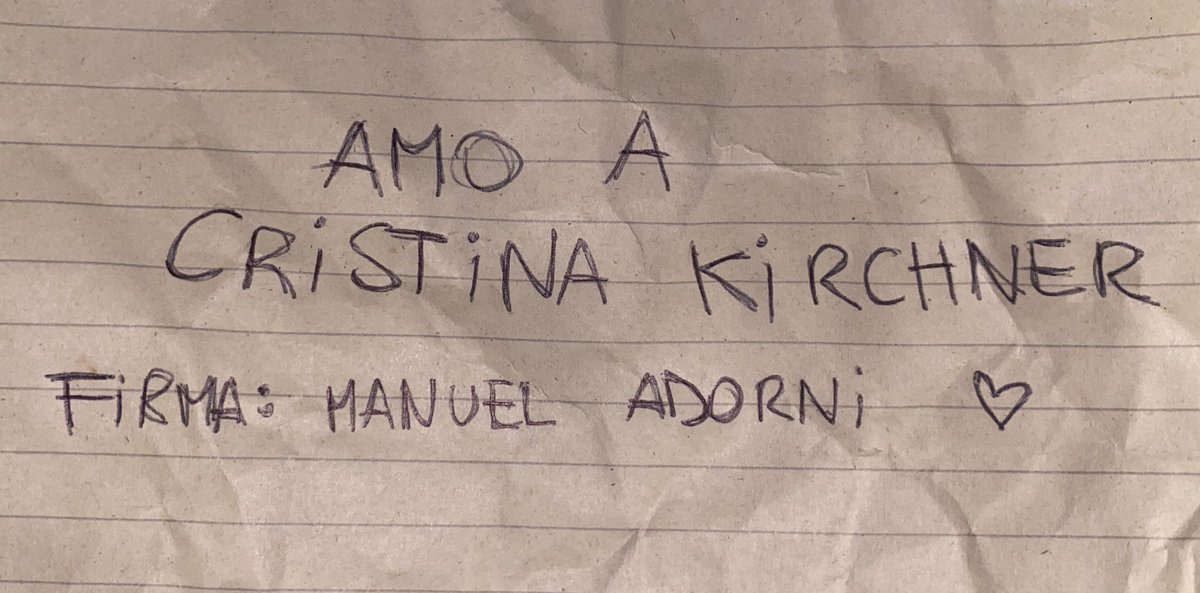 AMO A
CRiSTiNA KiRCHNER
FiRMA: MANUEL ADORNi ♡